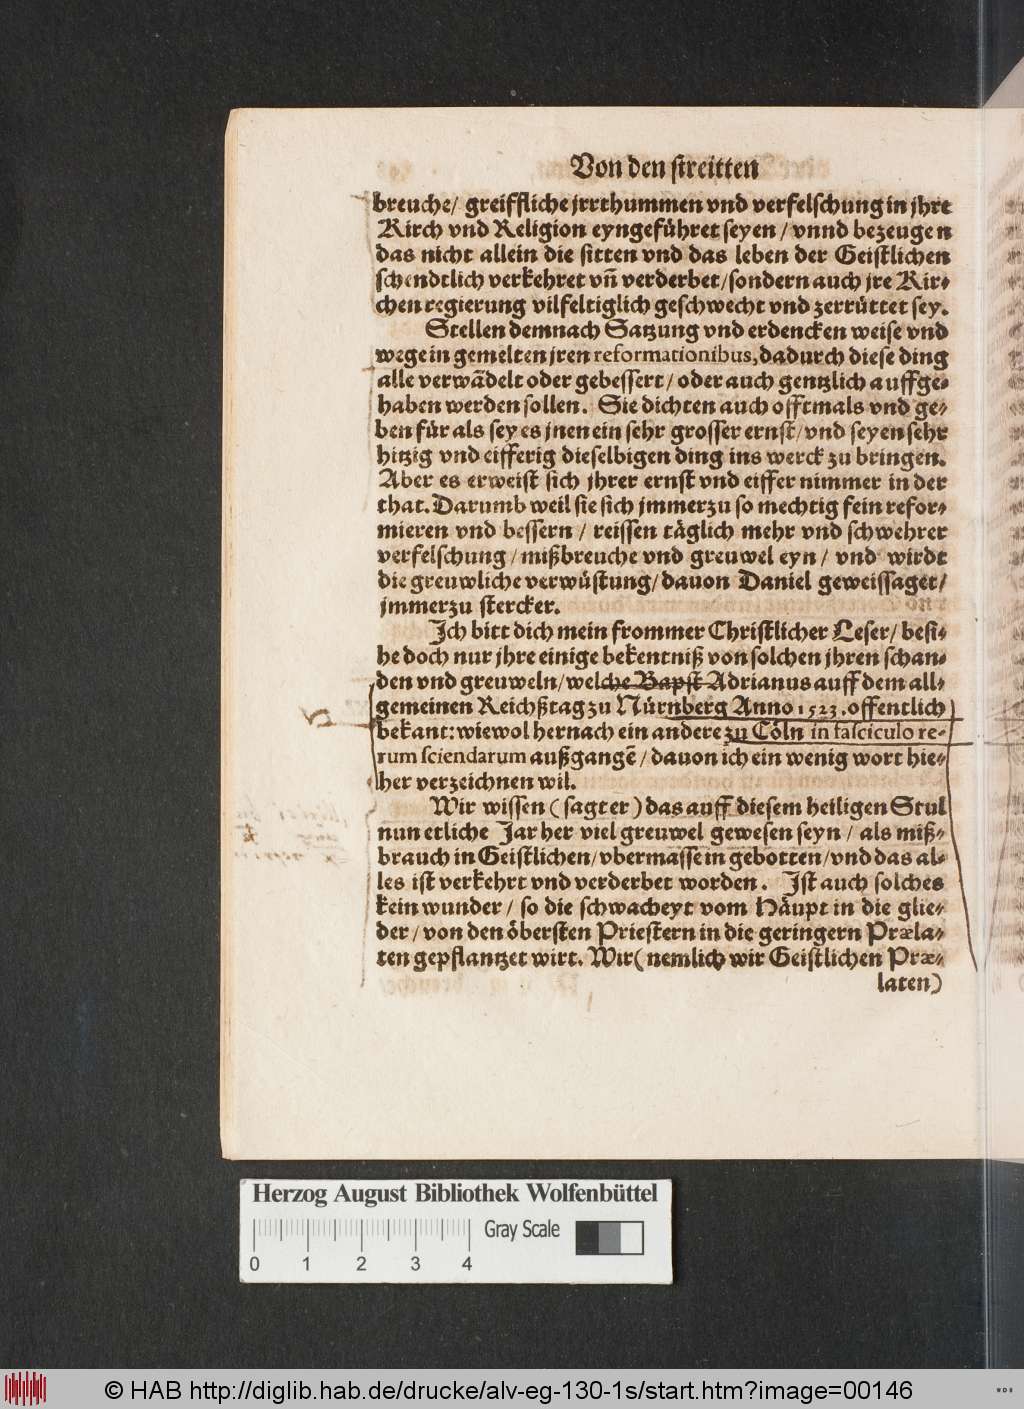 Von den streitten
breuche/ greiffliche jrrthummen vnd verfelschung in jhre
Kirch vnd Religion eyngeführet seyen / vnnd bezeugen
das nicht allein die sitten vnd das leben der Geistlichen
schendtlich verkehret vñ verderbet/sondern auch jre Kir-
chen regierung vilfeltiglich geschwecht vnd zerrüttet sey.
Stellen demnach Satzung vnd erdencken weise vnd
wege in gemelten jren reformationibus, dadurch diese ding
alle verwãdelt oder gebessert / oder auch gentzlich auffge-
haben werden sollen. Sie dichten auch offtmals vnd ge-
ben für als sey es jnen ein sehr grosser ernst/vnd seyen sehr
hitzig vnd eifferig dieselbigen ding ins werck zu bringen.
Aber es erweist sich jhrer ernst vnd eiffer nimmer in der
that. Darumb weil sie sich jmmerzu so mechtig fein refor-
mieren vnd bessern / reissen täglich mehr vnd schwehrer
verfelschung/mißbreuche vnd greuwel eyn / vnd wirdt
die greuwliche verwüstung/dauon Daniel geweissaget/
jmmerzu stercker.
Ich bitt dich mein frommer Christlicher Leser/ besi-
he doch nur jhre einige bekentniß von solchen jhren schan-
den vnd greuweln/welche Bapst Adrianus auff dem all-
gemeinen Reichßtag zu Nürnberg Anno 1523. offentlich
bekant: wiewol hernach ein andere zu Cöln in fasciculo re-
rum sciendarum außgangẽ / dauon ich ein wenig wort hie-
her verzeichnen wil.
Wir wissen (sagt er) das auff diesem heiligen Stul
nun etliche Jar her viel greuwel gewesen seyn / als miß-
brauch in Geistlichen/vbermasse in gebotten/vnd das al-
les ist verkehrt vnd verderbet worden. Ist auch solches
kein wunder / so die schwacheyt vom Häupt in die glie-
der/von den öbersten Priestern in die geringern Præla-
ten gepflantzet wirt. Wir (nemlich wir Geistlichen Præ-
laten)
Herzog August Bibliothek Wolfenbüttel
Gray Scale
0 1 2 3 4
© HAB http://diglib.hab.de/drucke/alv-eg-130-1s/start.htm?image=00146